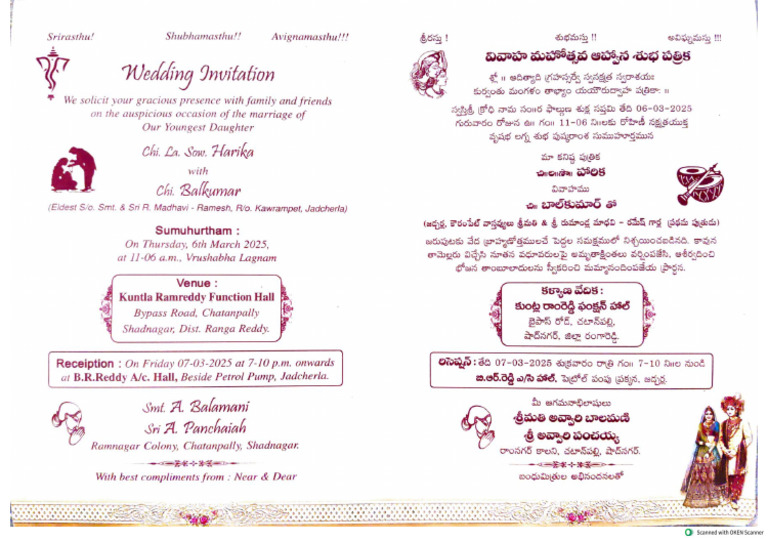 Srirasthu! Shubhamasthu!! Avignamasthu!!!
Wedding Invitation
We solicit your gracious presence with family and friends
on the auspicious occasion of the marriage of
Our Youngest Daughter
Chi. La. Sow. Harika
with
Chi. Balkumar
(Eldest S/o. Smt. & Sri R. Madhavi - Ramesh, R/o. Kawrampet, Jadcherla)
Sumuhurtham :
On Thursday, 6th March 2025,
at 11-06 a.m., Vrushabha Lagnam
Venue :
Kuntla Ramreddy Function Hall
Bypass Road, Chatanpally
Shadnagar, Dist. Ranga Reddy.
Recieption : On Friday 07-03-2025 at 7-10 p.m. onwards
at B.R.Reddy A/c. Hall, Beside Petrol Pump, Jadcherla.
Smt. A. Balamani
Sri A. Panchaiah
Ramnagar Colony, Chatanpally, Shadnagar.
With best compliments from : Near & Dear
శ్రీరస్తు ! శుభమస్తు !! అవిఘ్నమస్తు !!!
వివాహ మహోత్సవ ఆహ్వాన శుభ పత్రిక
శ్లో ॥ ఆదిత్యాది గ్రహస్సర్వే స్వనక్షత్ర స్వరాశయః
కుర్వంతు మంగళం తాభ్యాం యయోరుద్వాహ పత్రికా: ॥
స్వస్తిశ్రీ క్రోధి నామ సం॥ర ఫాల్గుణ శుక్ల సప్తమి తేది 06-03-2025
గురువారం రోజున ఉ॥ గం॥ 11-06 ని॥లకు రోహిణీ నక్షత్రయుక్త
వృషభ లగ్న శుభ పుష్కరాంశ సుముహూర్తమున
మా కనిష్ఠ పుత్రిక
చి॥ల॥సౌ॥ హారిక
వివాహము
చి॥ బాల్‌కుమార్ తో
(జడ్చర్ల, కౌరంపేట్ వాస్తవ్యులు శ్రీమతి & శ్రీ మాధవి - రమేష్ గార్ల ప్రథమ పుత్రుడు)
జరుపుటకు వేద బ్రాహ్మణోత్తములచే పెద్దల సమక్షములో నిశ్చయించబడినది. కావున
తామెల్లరు విచ్చేసి నూతన వధూవరులపై అమృతాక్షింతలు వర్షింపజేసి, ఆశీర్వదించి
భోజన తాంబూలాదులను స్వీకరించి మమ్మానందింపజేయ ప్రార్థన.
కళ్యాణ వేదిక :
కుంట్ల రాంరెడ్డి ఫంక్షన్ హాల్
బైపాస్ రోడ్, చటాన్‌పల్లి,
షాద్‌నగర్, జిల్లా రంగారెడ్డి.
రిసెప్షన్ : తేది 07-03-2025 శుక్రవారం రాత్రి గం॥ 7-10 ని॥ల నుండి
బి.ఆర్.రెడ్డి ఎ/సి హాల్, పెట్రోల్ పంపు ప్రక్కన, జడ్చర్ల.
మీ ఆగమనాభిలాషులు
శ్రీమతి అవ్వారి బాలమణి
శ్రీ అవ్వారి పంచయ్య
రాంనగర్ కాలని, చటాన్‌పల్లి, షాద్‌నగర్.
బంధుమిత్రుల అభినందనలతో
Scanned with OKEN Scanner